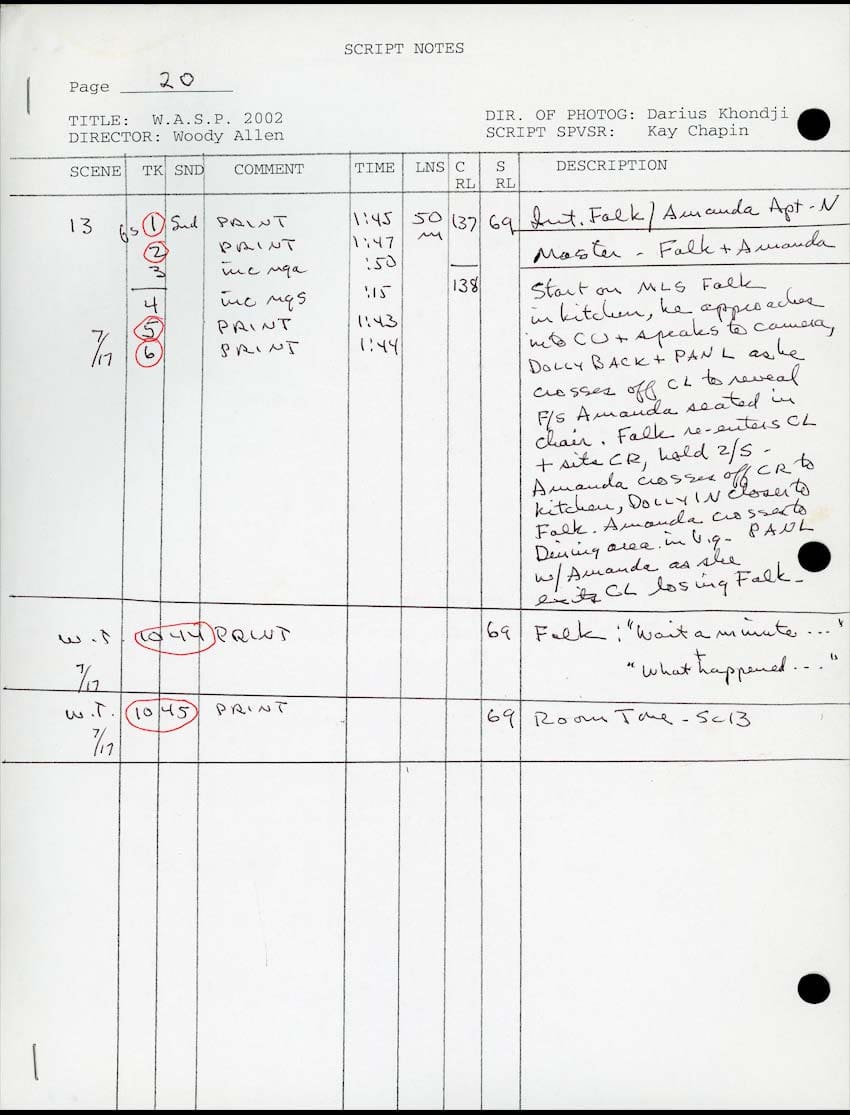 SCRIPT NOTES
Page 20
TITLE: W.A.S.P. 2002
DIR. OF PHOTOG: Darius Khondji
DIRECTOR: Woody Allen
SCRIPT SPVSR: Kay Chapin
SCENE TK SND COMMENT TIME LNS C RL S RL DESCRIPTION
13 1 Snd PRINT 1:45 50 m 137 69 Int. Falk / Amanda Apt - N
2 PRINT 1:47 Master - Falk + Amanda
3 inc :50
4 inc :15 138 Start on MLS Falk
5 PRINT 1:43 in kitchen, he approaches
7/17 6 PRINT 1:44 into CU + speaks to camera,
DOLLY BACK + PAN L as he
crosses off CL to reveal
F/S Amanda seated in
chair. Falk re-enters CL
+ sits CR, hold 2/S -
Amanda crosses off CR to
kitchen, DOLLY IN closer to
Falk. Amanda crosses to
Dining area in b.g. PAN L
w/ Amanda as she
exits CL losing Falk -
W.T. 1044 PRINT 69 Falk: "Wait a minute ..."
+
7/17 "What happened ..."
W.T. 1045 PRINT 69 Room Tone - Sc 13
7/17